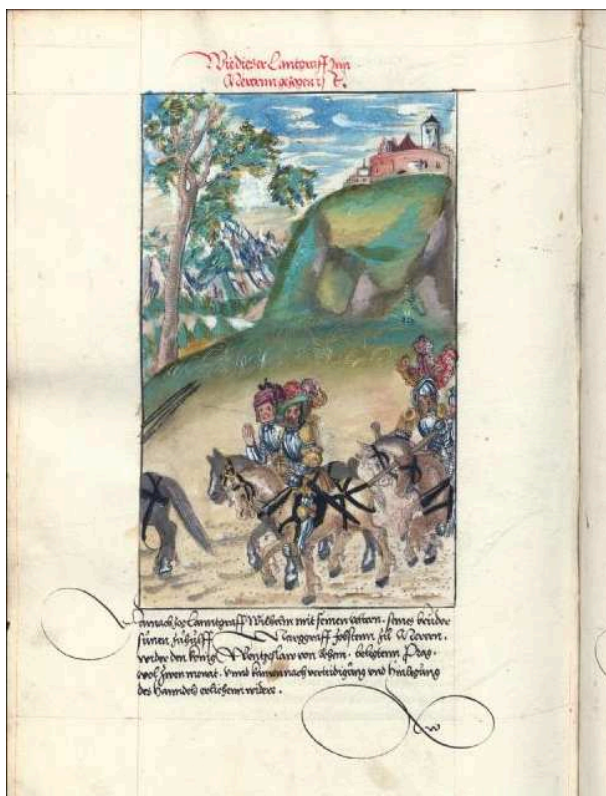 Wie dieser Lantgraff Inn
Merern gezogen ꝛc.
Darnach zog Lanntgraff Wilhelm mit seinen vetern, seines bruder
sünen zuhülff Marggraff Jobstenn zu Merern,
wider den konig Wentzslaw von Behem, belegtenn Prag,
wol zwen monat, vnnd kamen nach verteidigung vnd hinlegung
des hanndels erlichenn widere.